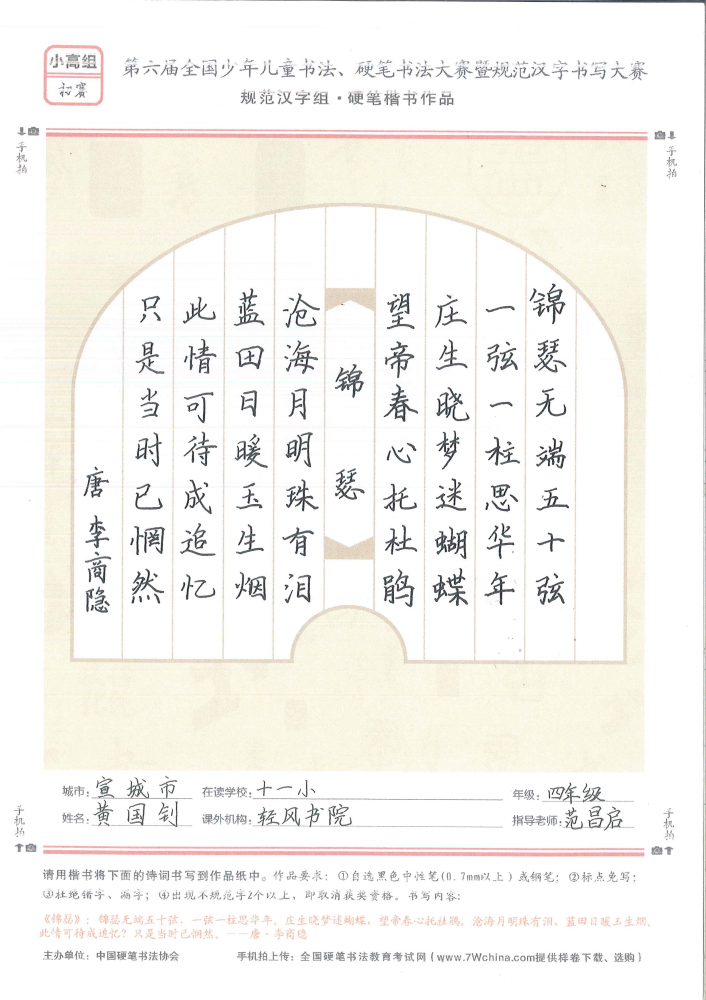 小高组
初赛
第六届全国少年儿童书法、硬笔书法大赛暨规范汉字书写大赛
规范汉字组·硬笔楷书作品
手机拍
手机拍
锦瑟无端五十弦
一弦一柱思华年
庄生晓梦迷蝴蝶
望帝春心托杜鹃
锦瑟
沧海月明珠有泪
蓝田日暖玉生烟
此情可待成追忆
只是当时已惘然
唐 李商隐
城市:宣城市 在读学校:十一小 年级:四年级
姓名:黄国钊 课外机构:轻风书院 指导老师:范昌启
手机拍
手机拍
请用楷书将下面的诗词书写到作品纸中。作品要求:①自选黑色中性笔(0.7mm以上)或钢笔;②标点免写;
③杜绝错字、漏字;④出现不规范字2个以上,即取消获奖资格。书写内容:
《锦瑟》:锦瑟无端五十弦,一弦一柱思华年。庄生晓梦迷蝴蝶,望帝春心托杜鹃。沧海月明珠有泪,蓝田日暖玉生烟。
此情可待成追忆?只是当时已惘然。——唐·李商隐
主办单位:中国硬笔书法协会 手机拍上传:全国硬笔书法教育考试网(www.7Wchina.com提供样卷下载、选购)